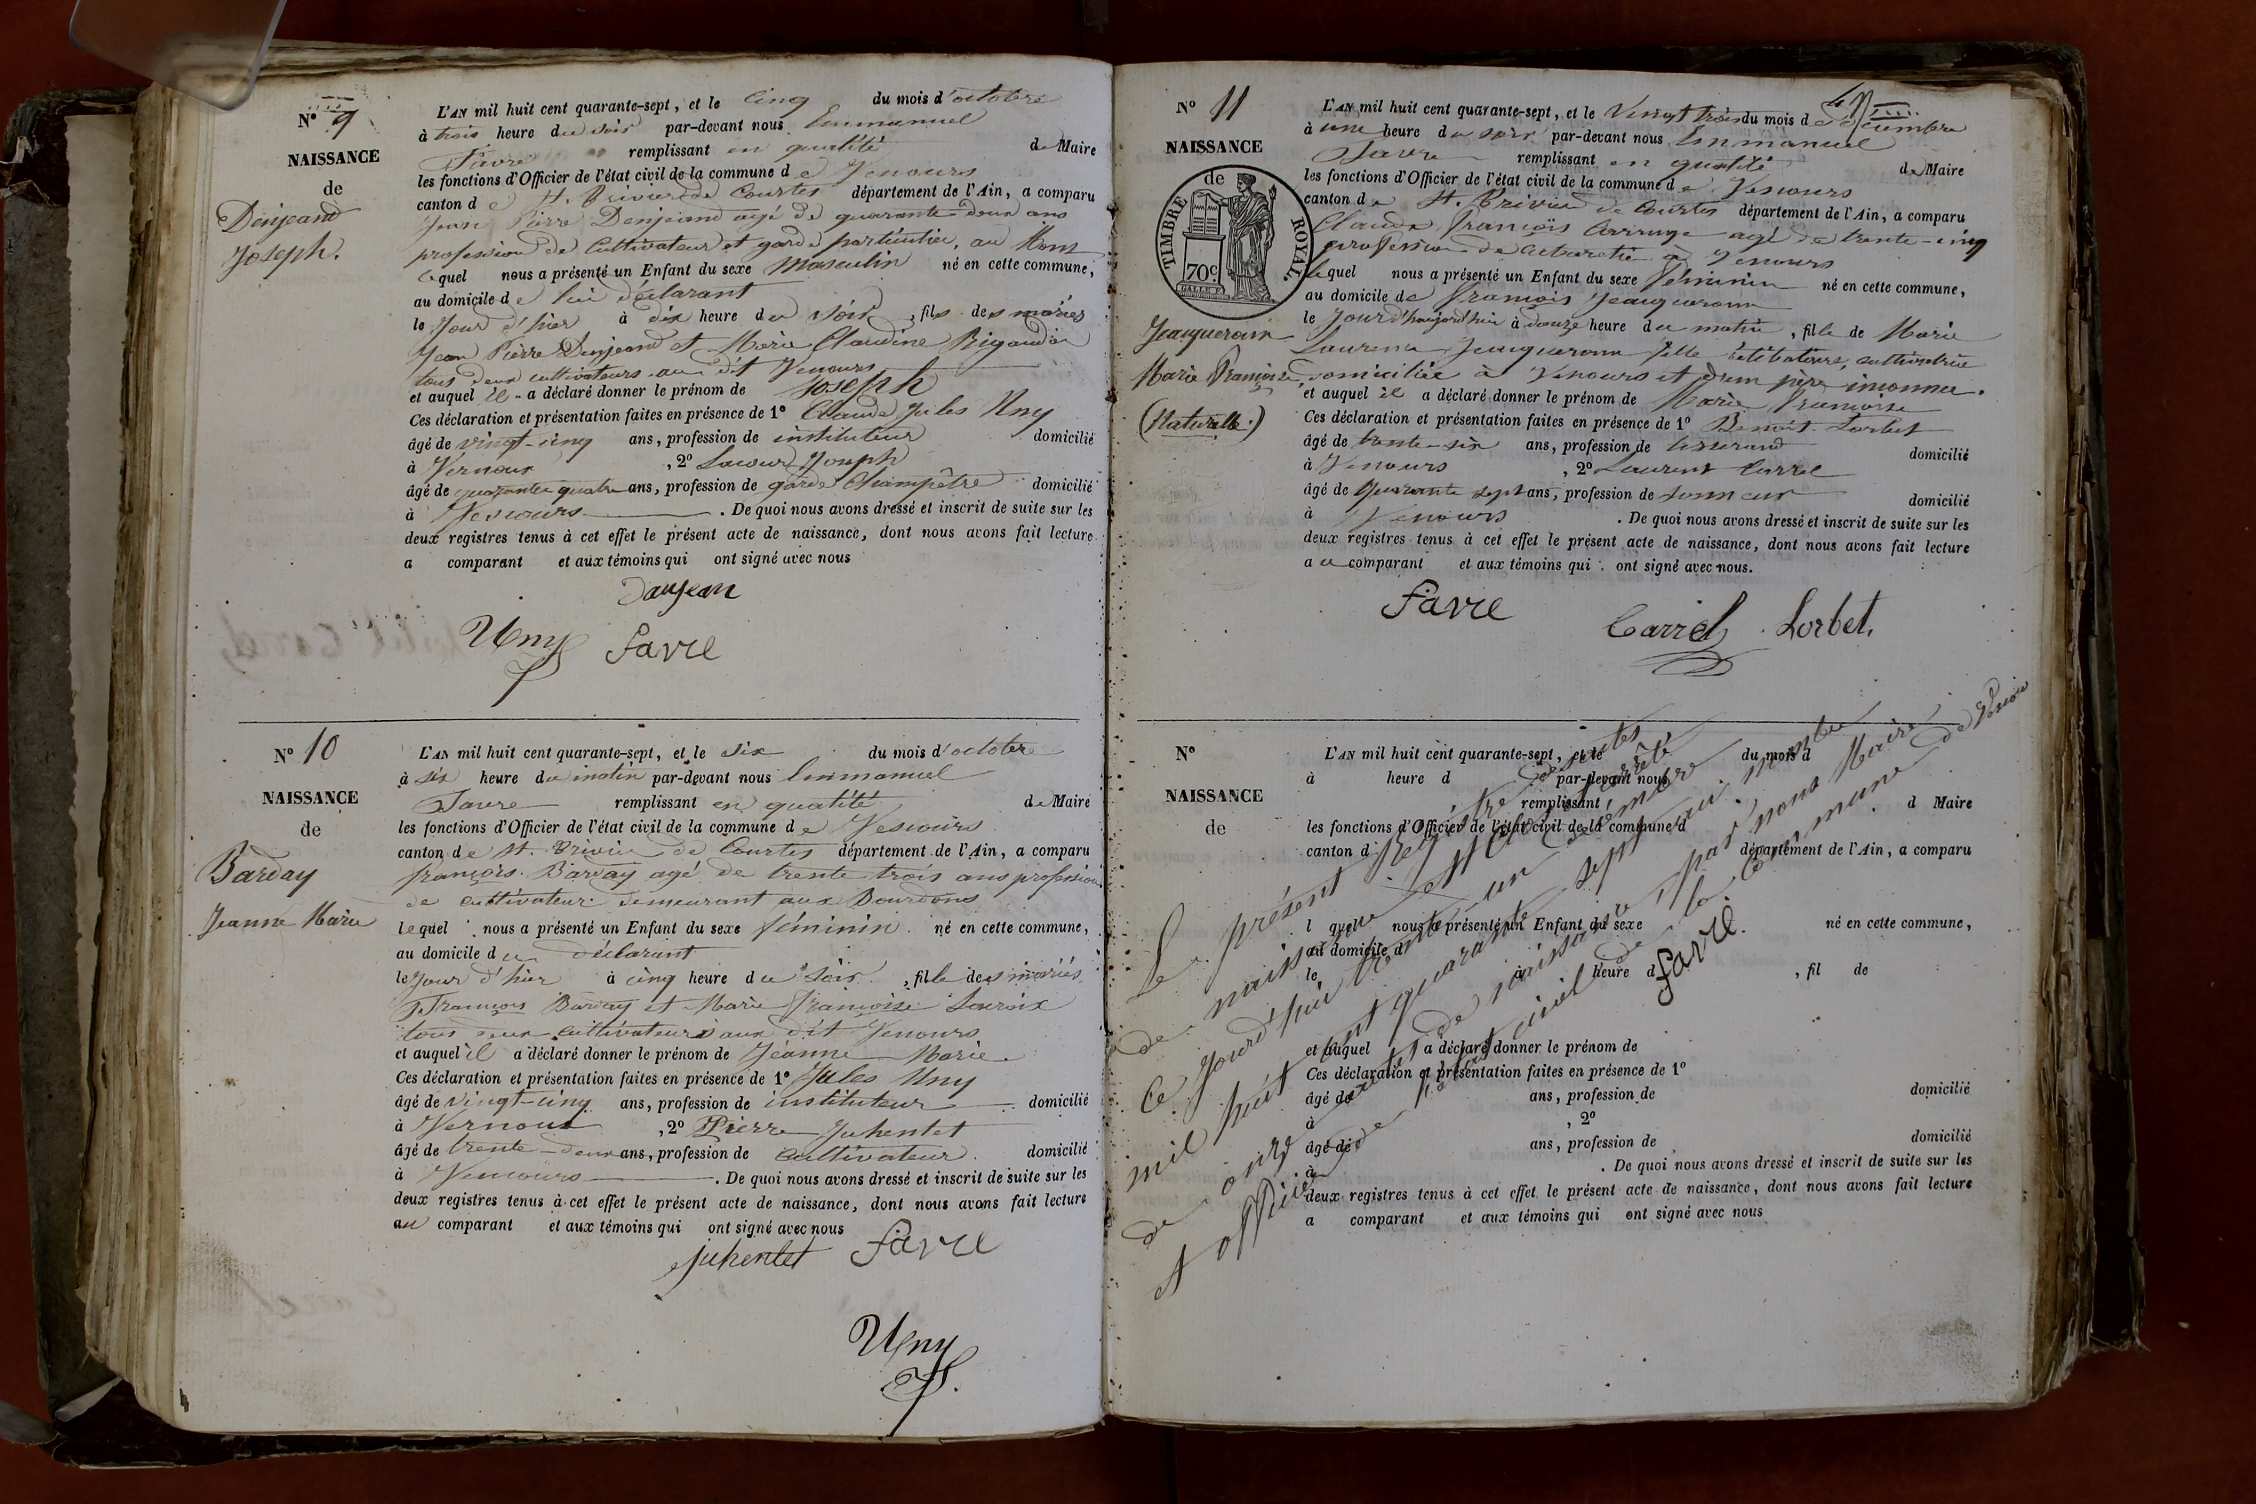 N° 9
NAISSANCE
de
Denjeand
Joseph.
L'AN mil huit cent quarante-sept, et le Cinq du mois d'octobre
à trois heure du soir par-devant nous Emmanuel
Favre remplissant en qualité de Maire
les fonctions d'Officier de l'état civil de la commune de Vescours
canton de St. Trivier de Courtes département de l'Ain, a comparu
Jean Pierre Denjeand agé de quarante deux ans
profession de Cultivateur et garde particulier, au Mons
lequel nous a présenté un Enfant du sexe masculin né en cette commune,
au domicile de lui déclarant
le Jour d'hier à dix heure du soir, fils des mariés
Jean Pierre Denjeand et Marie Claudine Rigaudin
tous deux cultivateurs au dit Vescours
et auquel il a déclaré donner le prénom de Joseph
Ces déclaration et présentation faites en présence de 1° Claude Jules Uny
âgé de vingt-cinq ans, profession de instituteur domicilié
à Vernoux, 2° Lacour Joseph
âgé de quarante quatre ans, profession de garde Champêtre domicilié
à Vescours. De quoi nous avons dressé et inscrit de suite sur les
deux registres tenus à cet effet le présent acte de naissance, dont nous avons fait lecture
a comparant et aux témoins qui ont signé avec nous
Danjean
Uny Favre
N° 10
NAISSANCE
de
Barday
Jeanne Marie
L'AN mil huit cent quarante-sept, et le six du mois d'octobre
à six heure du matin par-devant nous Emmanuel
Favre remplissant en qualité de Maire
les fonctions d'Officier de l'état civil de la commune de Vescours
canton de St. Trivier de Courtes département de l'Ain, a comparu
françois Barday agé de trente trois ans profession
de cultivateur demeurant aux Bourdons
lequel nous a présenté un Enfant du sexe féminin né en cette commune,
au domicile du déclarant
le Jour d'hier à cinq heure du soir, fille des mariés
François Barday et Marie françoise Lacroix
tous deux cultivateurs aux dit Vescours
et auquel il a déclaré donner le prénom de Jeanne Marie
Ces déclaration et présentation faites en présence de 1° Jules Uny
âgé de vingt-cinq ans, profession de instituteur domicilié
à Vernoux, 2° Pierre Juhentet
âgé de trente-deux ans, profession de Cultivateur domicilié
à Vescours. De quoi nous avons dressé et inscrit de suite sur les
deux registres tenus à cet effet le présent acte de naissance, dont nous avons fait lecture
au comparant et aux témoins qui ont signé avec nous
Juhentet Favre
Uny
N° 11
NAISSANCE
de
TIMBRE ROYAL
70c
Jeauqueroun
Marie Françoise
(Naturelle.)
L'AN mil huit cent quarante-sept, et le Vingt trois du mois de décembre
à une heure du soir par-devant nous Emmanuel
Favre remplissant en qualité de Maire
les fonctions d'Officier de l'état civil de la commune de Vescours
canton de St. Trivier de Courtes département de l'Ain, a comparu
Claude françois agé de trente-cinq
profession de à Vescours
lequel nous a présenté un Enfant du sexe féminin né en cette commune,
au domicile de François Jeauqueroun
le Jourd'haujord'hui à douze heure du matin, fille de Marie
Laurence Jeauqueroun fille célibataire, cultivatrice
domiciliée à Vescours et d'un père inconnu.
et auquel il a déclaré donner le prénom de Marie Françoise
Ces déclaration et présentation faites en présence de 1° Benoit Lorbet
âgé de trente-six ans, profession de tisserand domicilié
à Vescours, 2° Laurent Carrel
âgé de quarante sept ans, profession de sonneur domicilié
à Vescours. De quoi nous avons dressé et inscrit de suite sur les
deux registres tenus à cet effet le présent acte de naissance, dont nous avons fait lecture
au comparant et aux témoins qui ont signé avec nous.
Favre
Carrel Lorbet.
N°
NAISSANCE
de
L'AN mil huit cent quarante-sept, et le du mois d
à heure d par-devant nous
remplissant d Maire
les fonctions d'Officier de l'état civil de la commune d
canton d département de l'Ain, a comparu
l quel nous a présenté un Enfant du sexe né en cette commune,
au domicile d
le à heure d, fil de
et auquel a déclaré donner le prénom de
Ces déclaration et présentation faites en présence de 1°
âgé de ans, profession de domicilié
à, 2°
âgé de ans, profession de domicilié
à. De quoi nous avons dressé et inscrit de suite sur les
deux registres tenus à cet effet le présent acte de naissance, dont nous avons fait lecture
a comparant et aux témoins qui ont signé avec nous
Le présent Registre des actes
de naissance est clos et arrêté
Ce Jourd'hui trente un décembre
mil huit cent quarante sept au nombre
de onze actes de naissance par nous Maire
et officier de l'état civil de la Commune de Vescours
Favre.